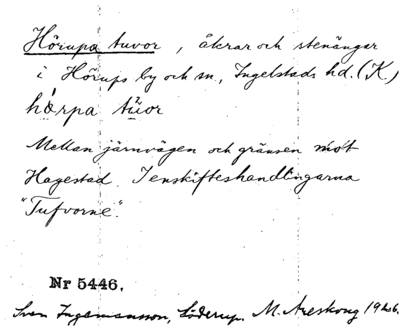 Hörupa tuvor, åkrar och stenängar
i Hörups by och sn, Ingelstads hd. (K.)
hö́rpa tŭor
Mellan järnvägen och gränsen mot
Hagestad. I enskifteshandlingarna
"Tufvorne".
Nr 5446.
Sven Ingemansson, Löderup. M. Areskoug